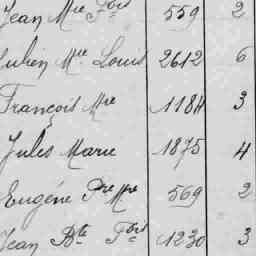 Jean Mie Fois 559 2
Julien Mie Louis 2612 6
François Mie 1184 3
Jules Marie 1875 4
Eugène Pre Mie 569 2
Jean Bte Fois 1230 3